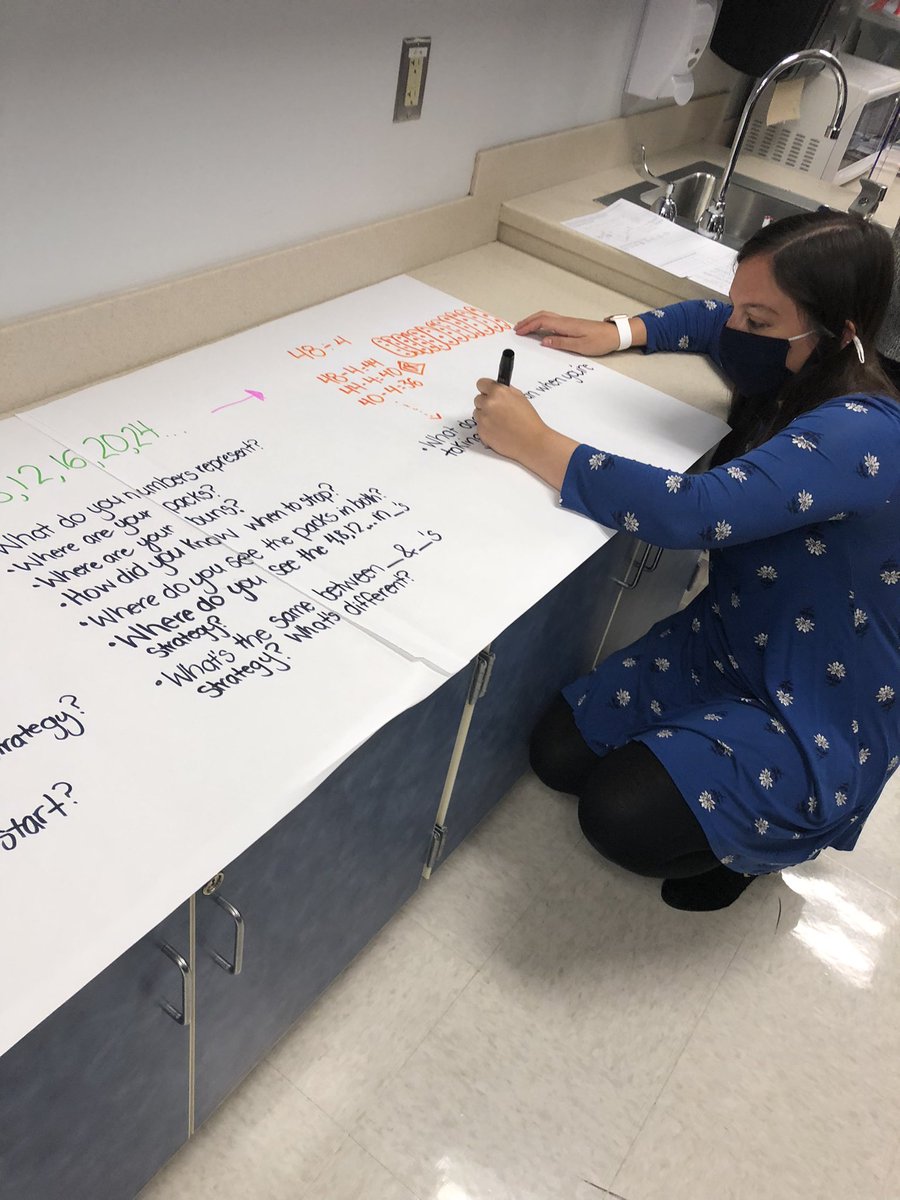 48÷4
48-4=44
44-4=40
40-4=36
, 12, 16, 20, 24 ...
What do you numbers represent?
• Where are your packs?
• Where are your buns?
• How did you know when to stop?
• Where do you see the packs in both?
• Where do you see the 4,8,12... in _'s
strategy?
• What's the same between _ & _'s
strategy? What's different?
• What when you're
taking
strategy?
start?